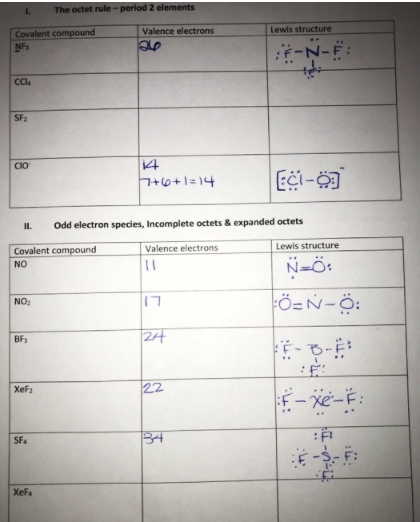 I. The octet rule – period 2 elements
Covalent compound Valence electrons Lewis structure
NF₃ 26 :F-N-F:
:F:
CCl₄
SF₂
ClO⁻ 14
7+6+1=14 [:Cl-O:]⁻
II. Odd electron species, Incomplete octets & expanded octets
Covalent compound Valence electrons Lewis structure
NO 11 N=O:
NO₂ 17 :O=N-O:
BF₃ 24 :F-B-F:
:F:
XeF₂ 22 :F-Xe-F:
SF₄ 34 :F:
:F-S-F:
:F:
XeF₄